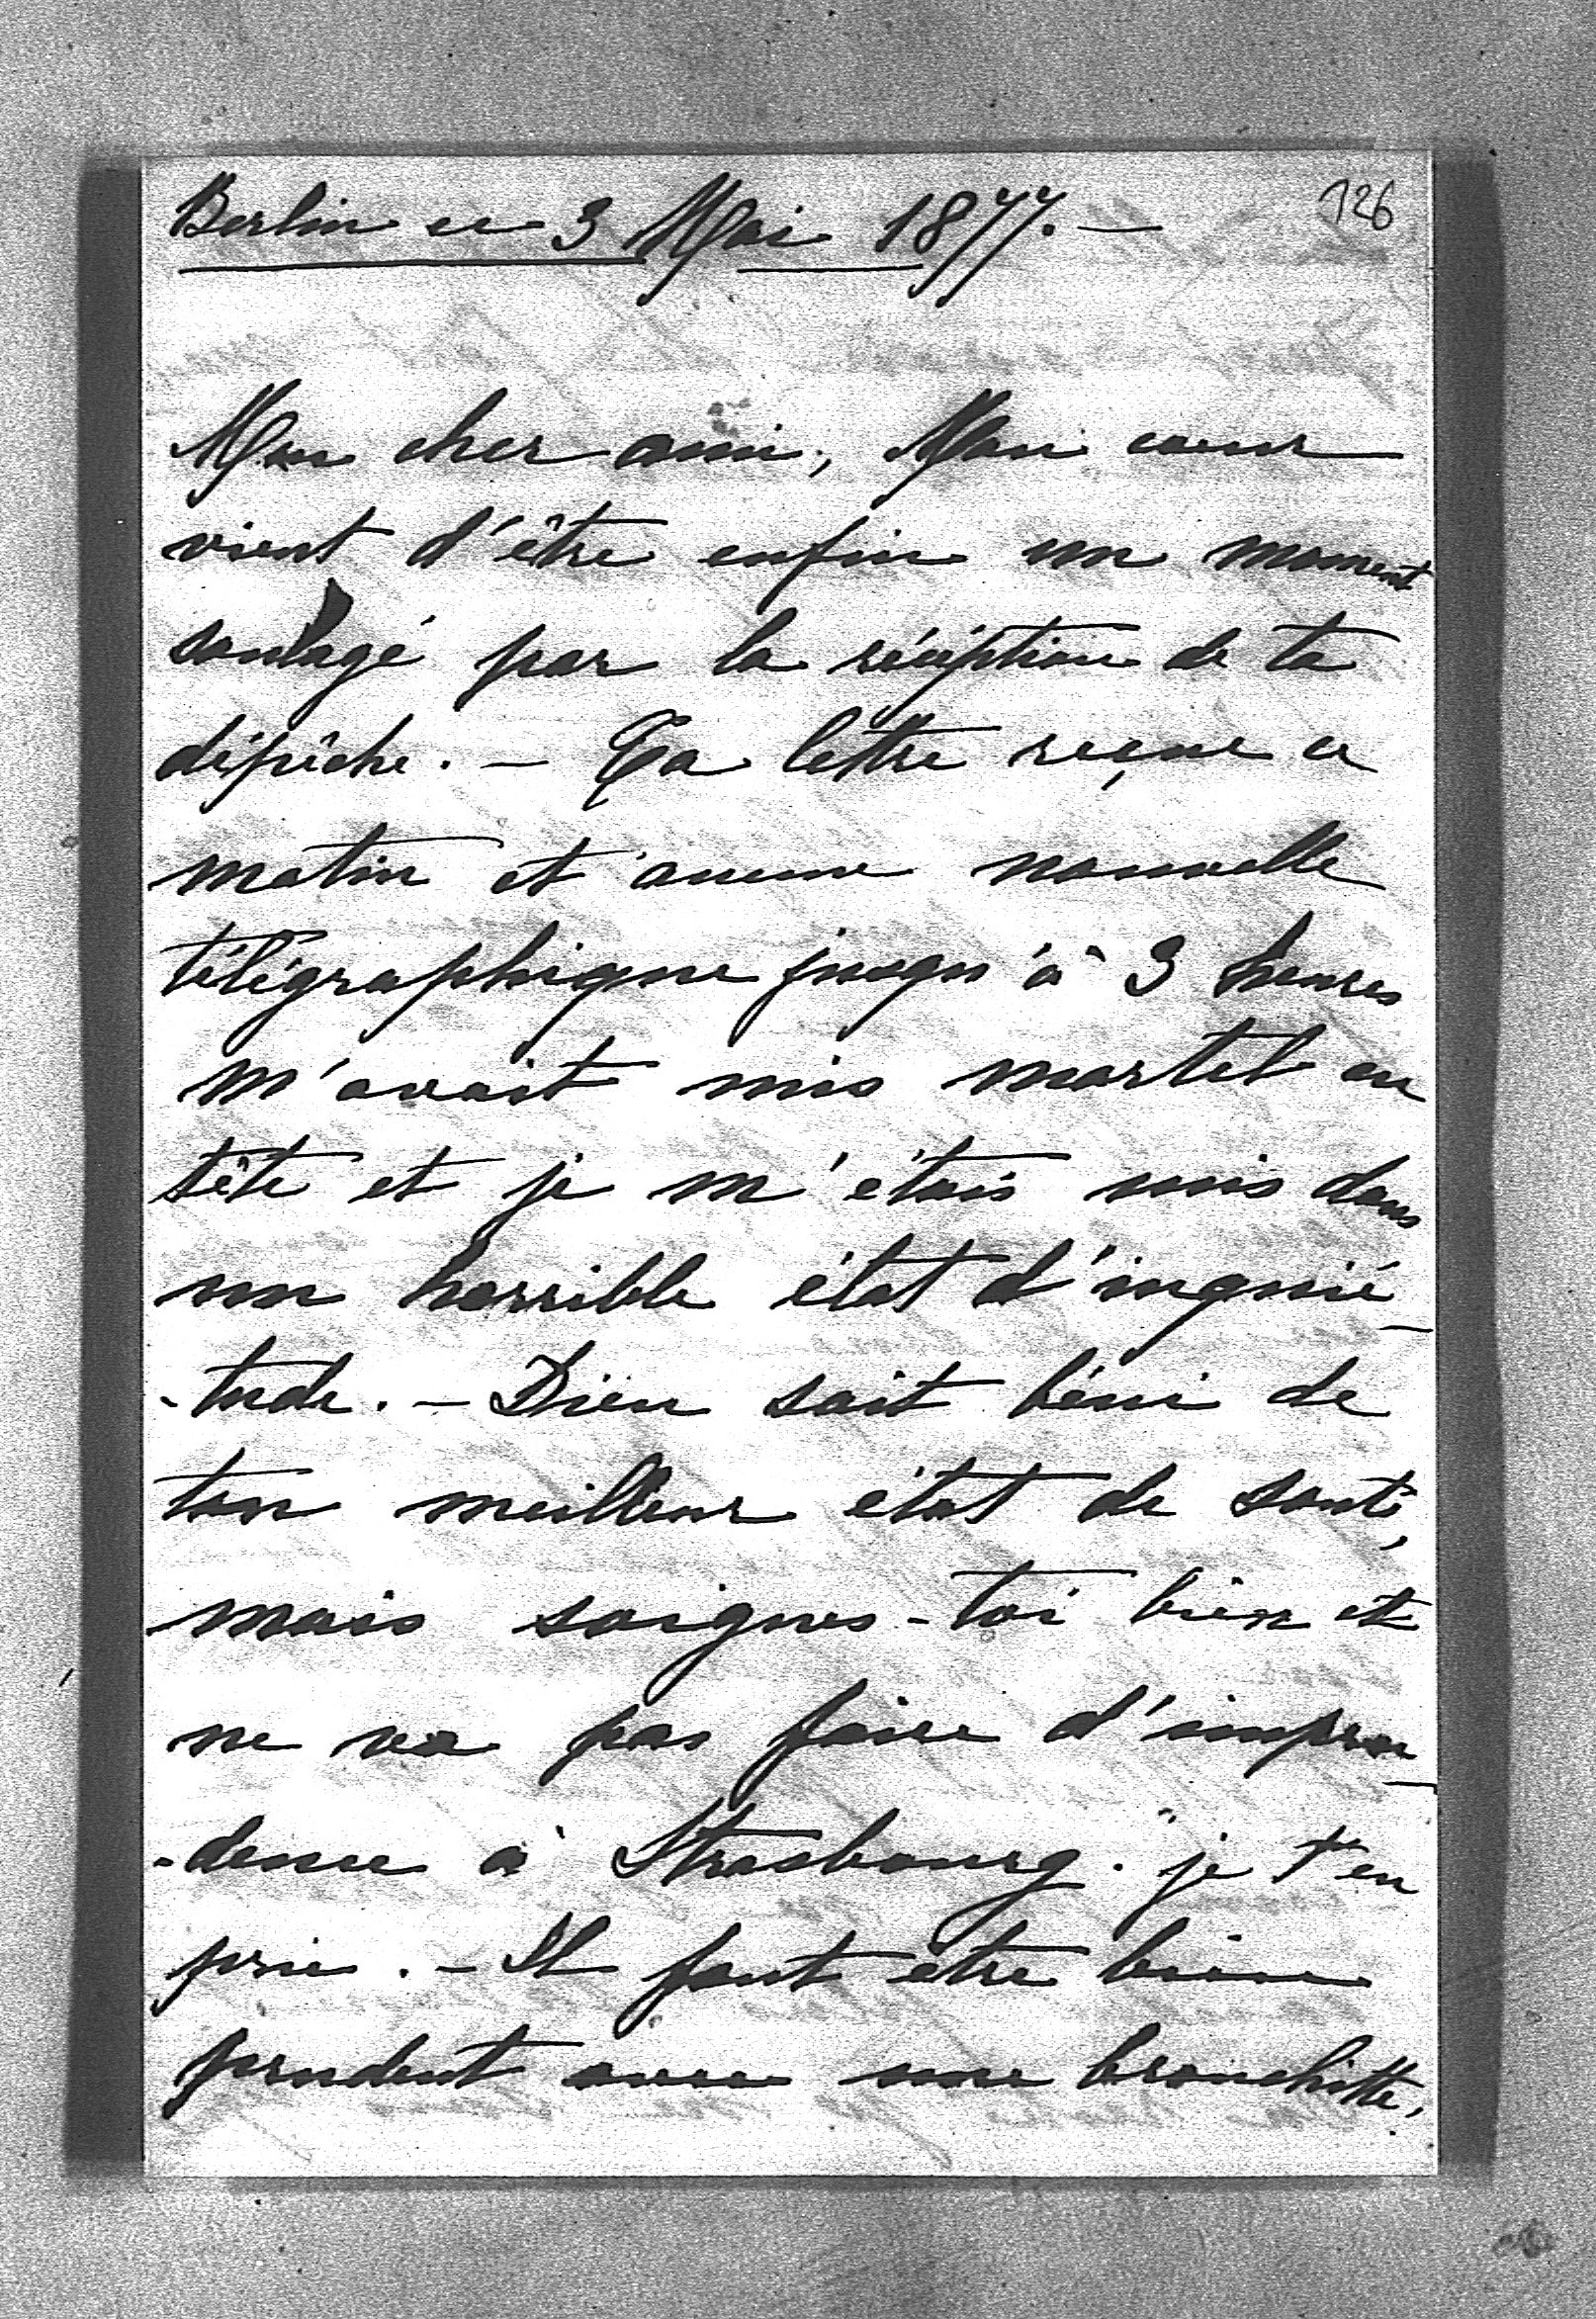 126
Berlin ce 3 Mai 1877. —
Mon cher ami, Mon coeur
vient d'être enfin un moment
soulagé par la réception de ta
dépêche. — Ta lettre reçue ce
matin et aucune nouvelle
télégraphique jusqu'à 3 heures
m'avait mis martel en
tête et je m'étais mis dans
un horrible état d'inquié-
-tude. — Dieu soit béni de
ton meilleur état de santé,
mais soignes-toi bien et
ne va pas faire d'impru-
-dence à Strasbourg. je t'en
prie. — Il faut être bien
prudent avec une bronchitte,